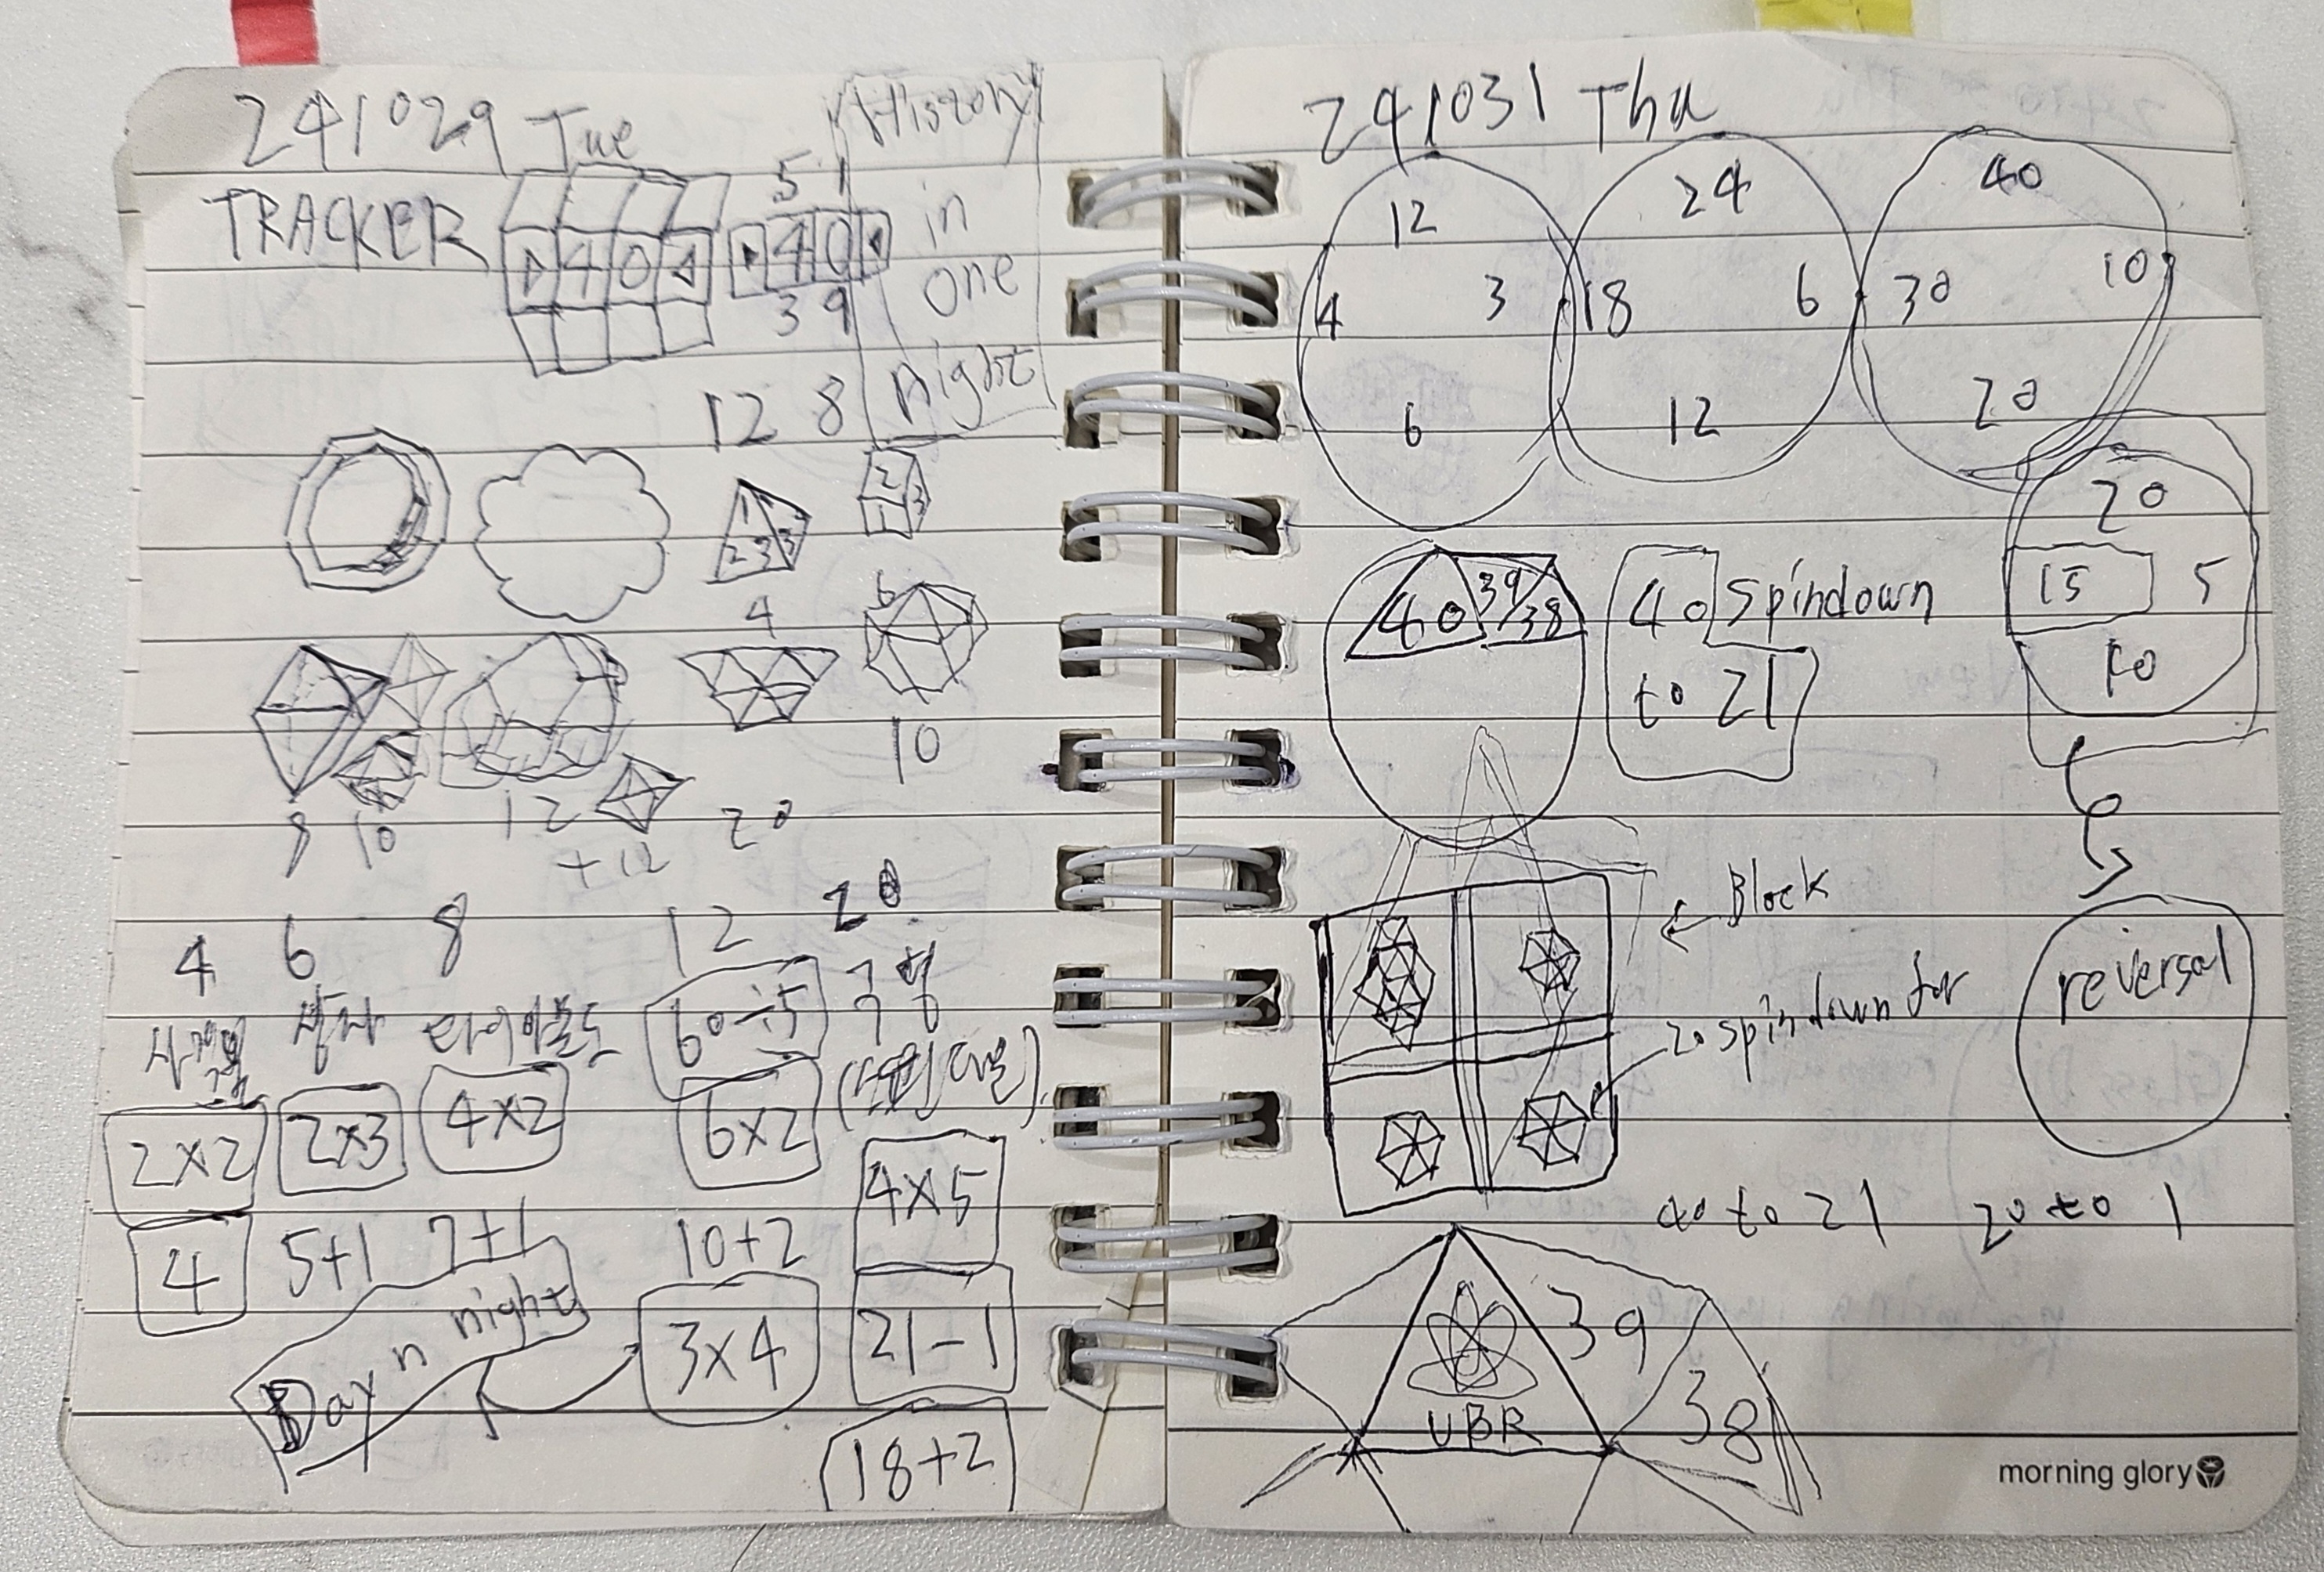 241029 Tue
History
in
one
night
TRACKER
▶ 4 0 ◀
5 1
▶ 4 0 ◀
3 9
12 8
1
2 3 3
2
1 3
4
6
10
8 10 12 20
+12
4 6 8 12 20
상자 다이아몬드 60÷5 구형
2x2 2x3 4x2 6x2 4x5
4 5+1 7+1 10+2 21-1
Day n night 3x4 18+2
241031 Thu
12 24 40
4 3 18 6 30 10
6 12 20
20
15 5
10
40 39 38
40 spindown
to 21
reversal
← Block
20 spindown for
40 to 21 20 to 1
UBR 39 38
morning glory